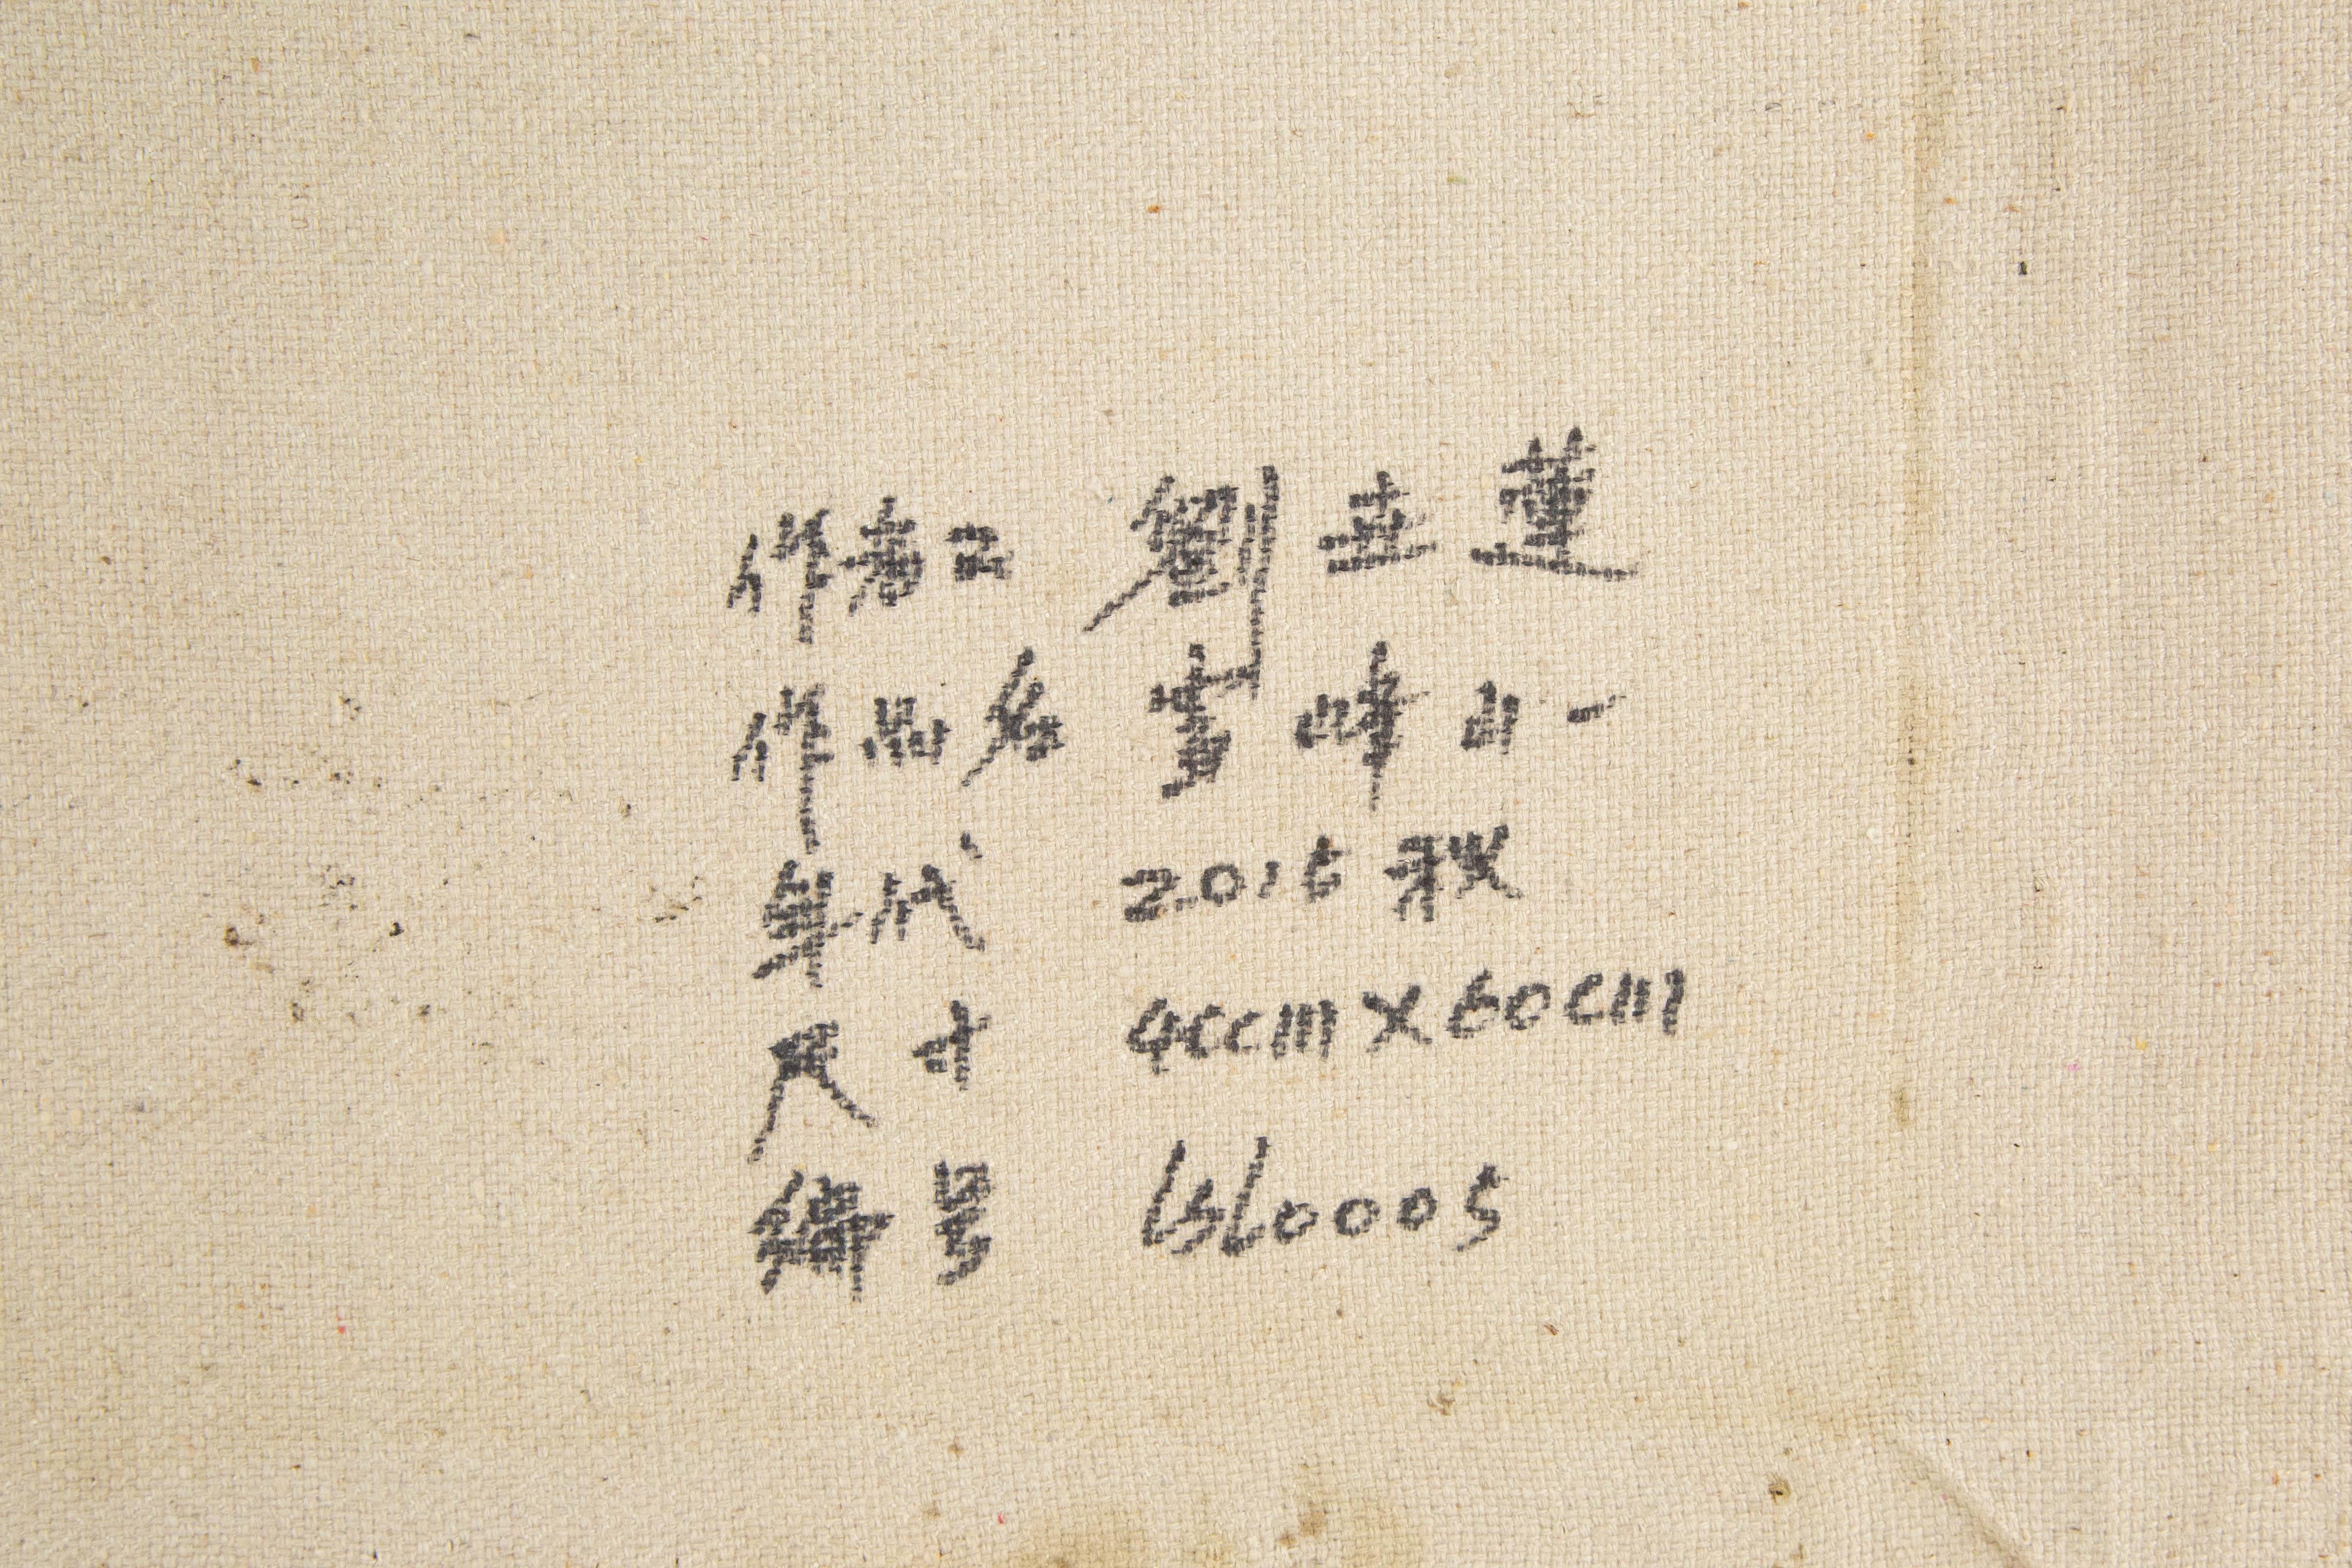 作者 劉 蓮
作品名 雪峰山一
年代 2016秋
尺寸 40cm×60cm
編号 LSL0005